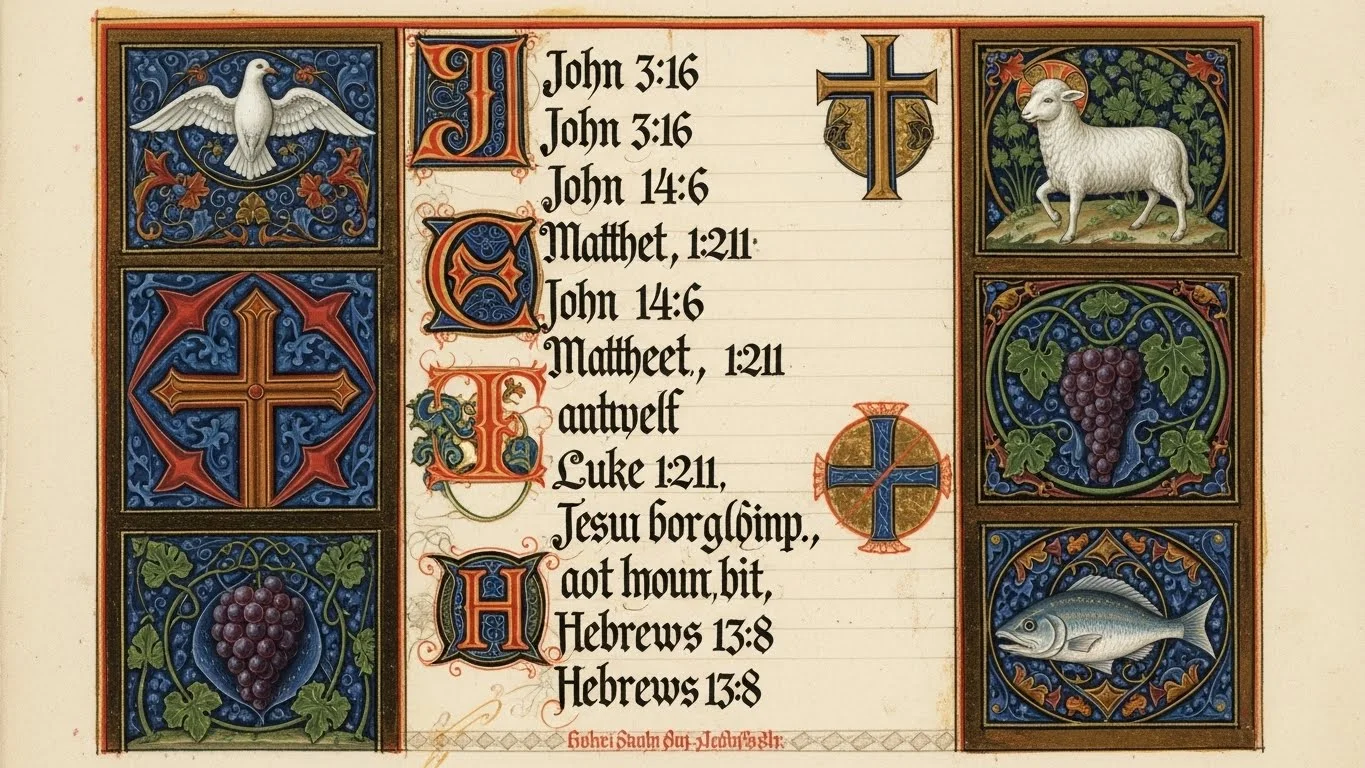 J
John 3:16
John 3:16
John 14:6
E
Matthet, 1:211
John 14:6
Mattheet, 1:211
I
antwelf
Luke 1:211,
Jesu
H
aot lnoun, bit,
Hebrews 13:8
Hebrews 13:8